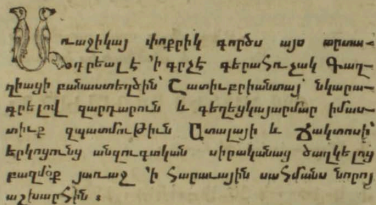 Առաջիկայ փոքրիկ գործս այս արտա-
օգրեալ է ՚ի գրչէ գերահռչակ Գաղ-
ղիացի բանաստեղծին՝ Շատիւբրիանտայ՝ նկարա-
գրելով զարդարուն և գեղեցկայարմար իմաս-
տիւք զպատմութիւն Ատալայի և Ճակտասի՝
երկոցունց անզուգական սիրականաց ծաղկելոց
բազմօք յառաջ ՚ի հարաւային սահմանս նորոյ
աշխարհին։